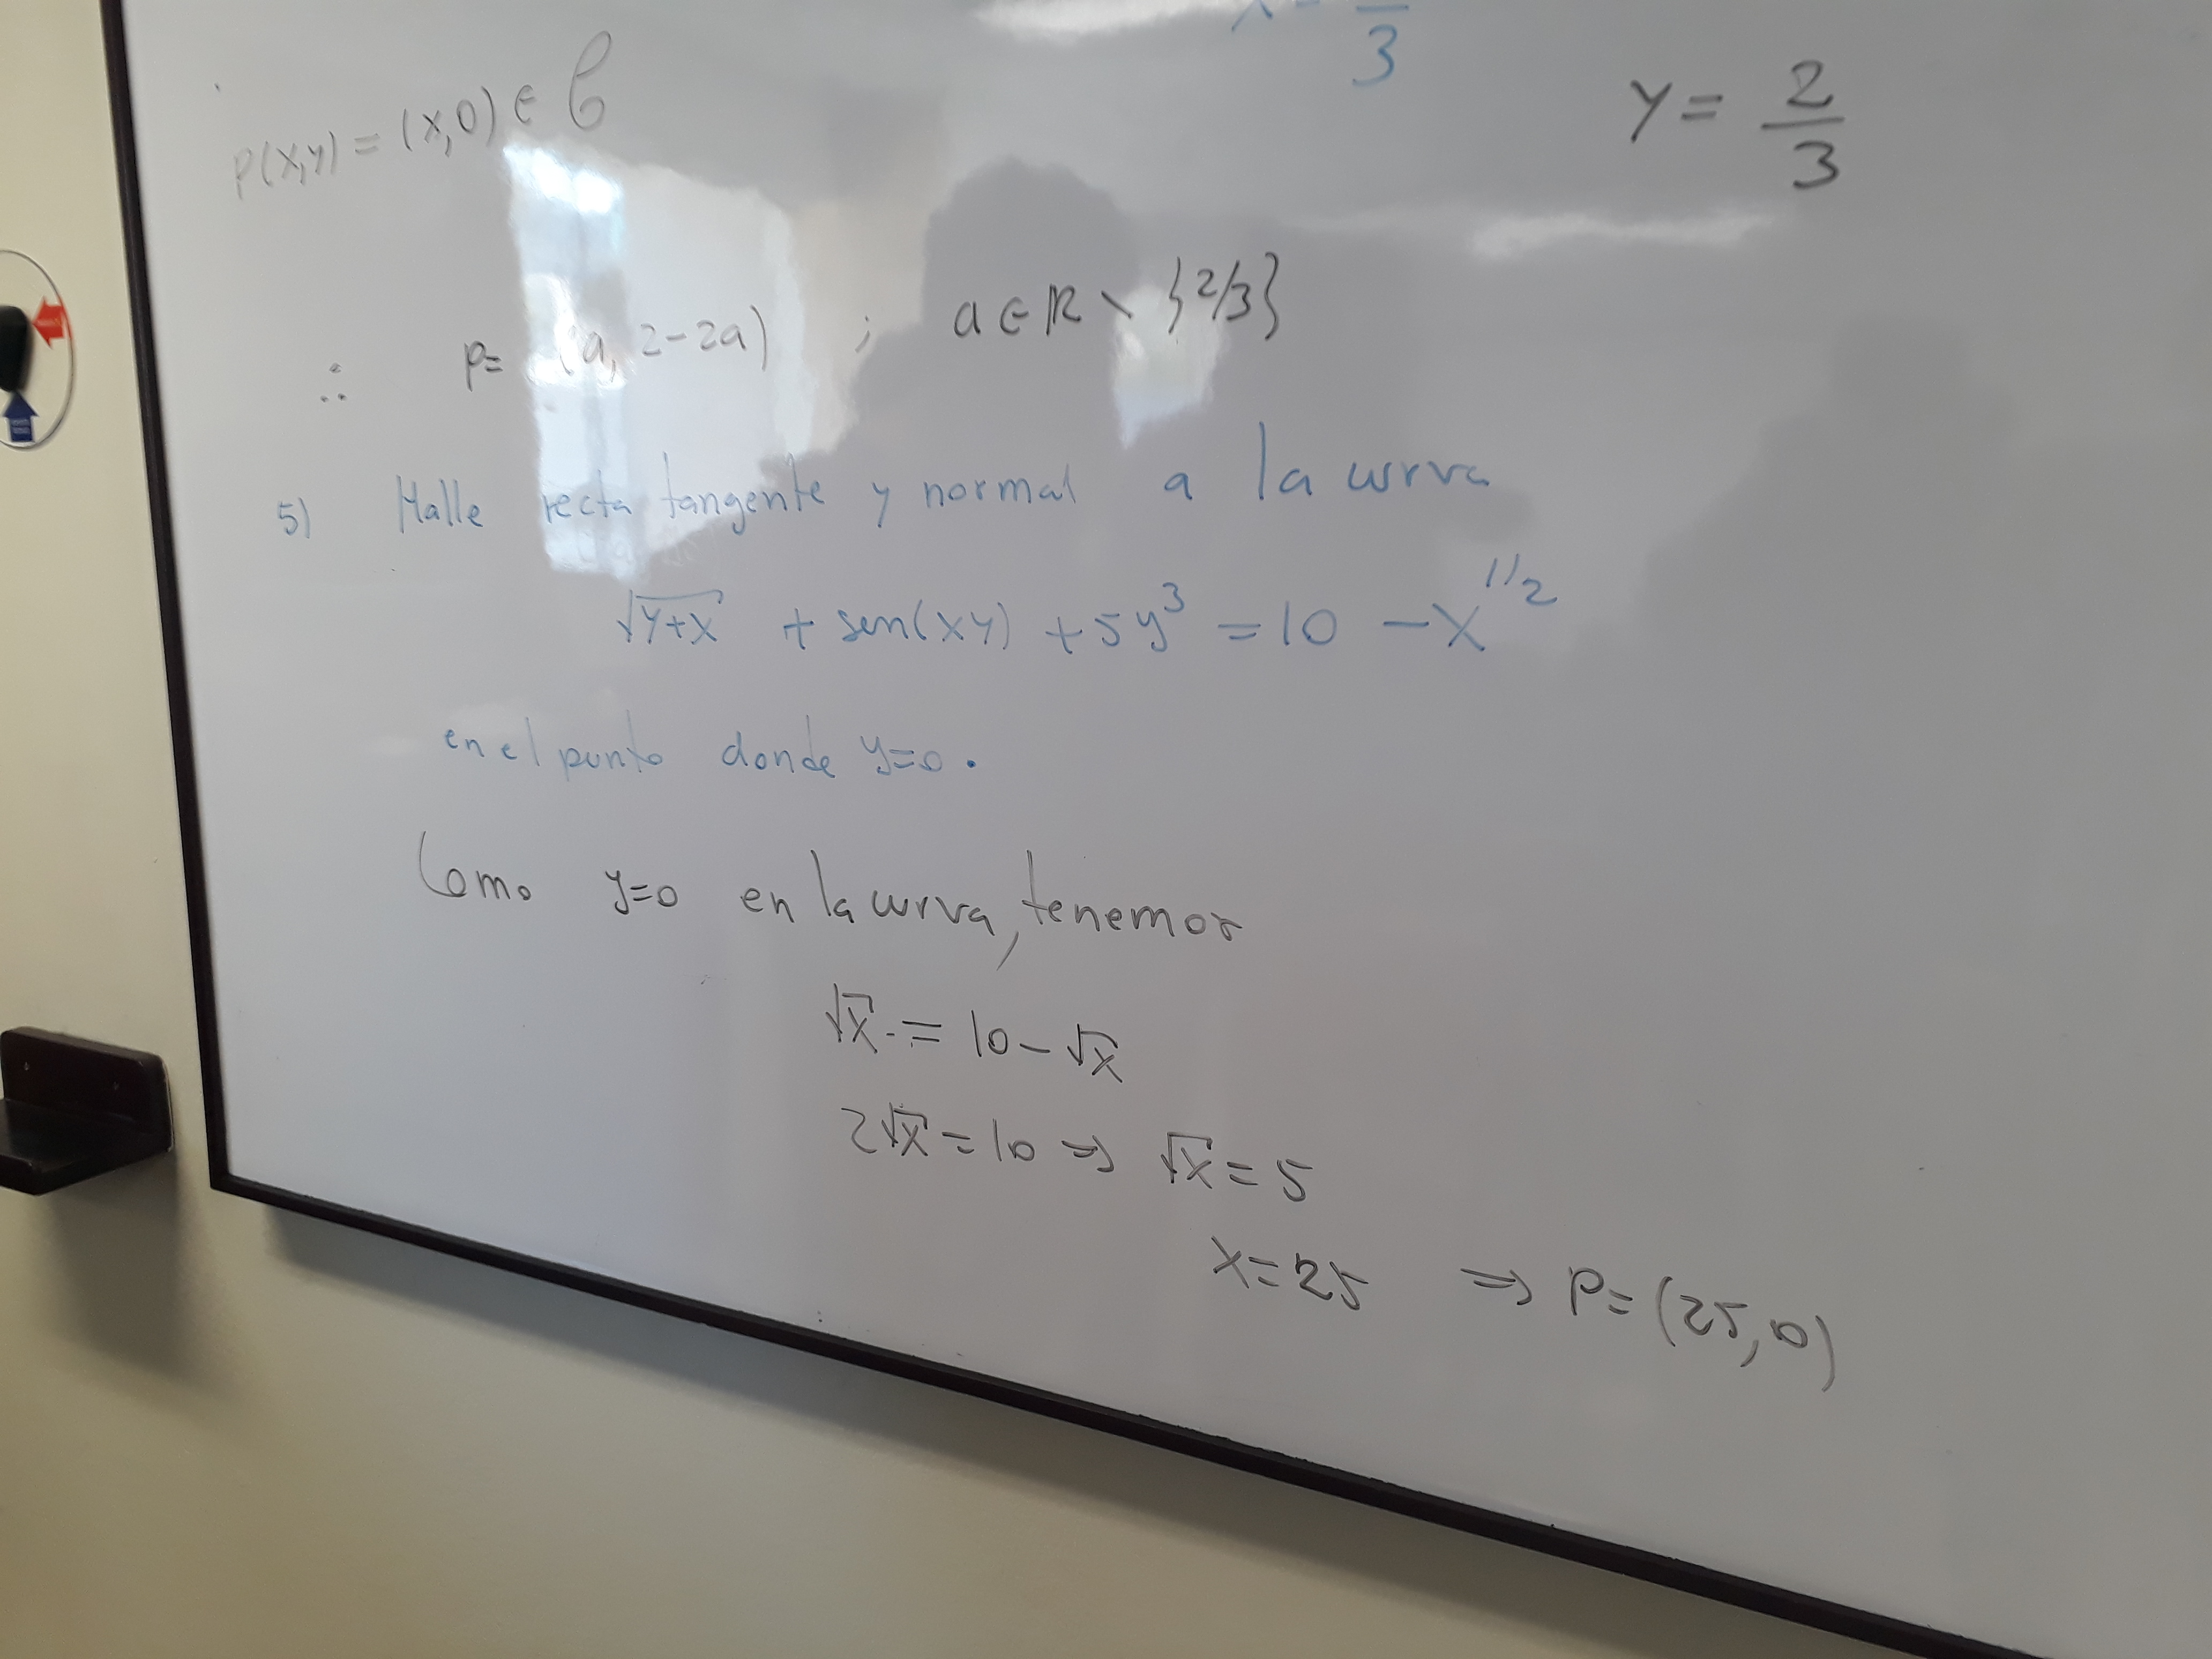 x = — 3
P(x,y) = (x,0) ∈ C
y = 2/3
∴ P= (a, 2-2a) ; a ∈ ℝ \ {2/3}
5) Halle recta tangente y normal a la curva
√(y+x) + sen(xy) + 5y³ = 10 - x^1/2
en el punto donde y=0.
Como y=0 en la curva, tenemos
√x = 10 - √x
2√x = 10 ⇒ √x = 5
x = 25 ⇒ P = (25,0)